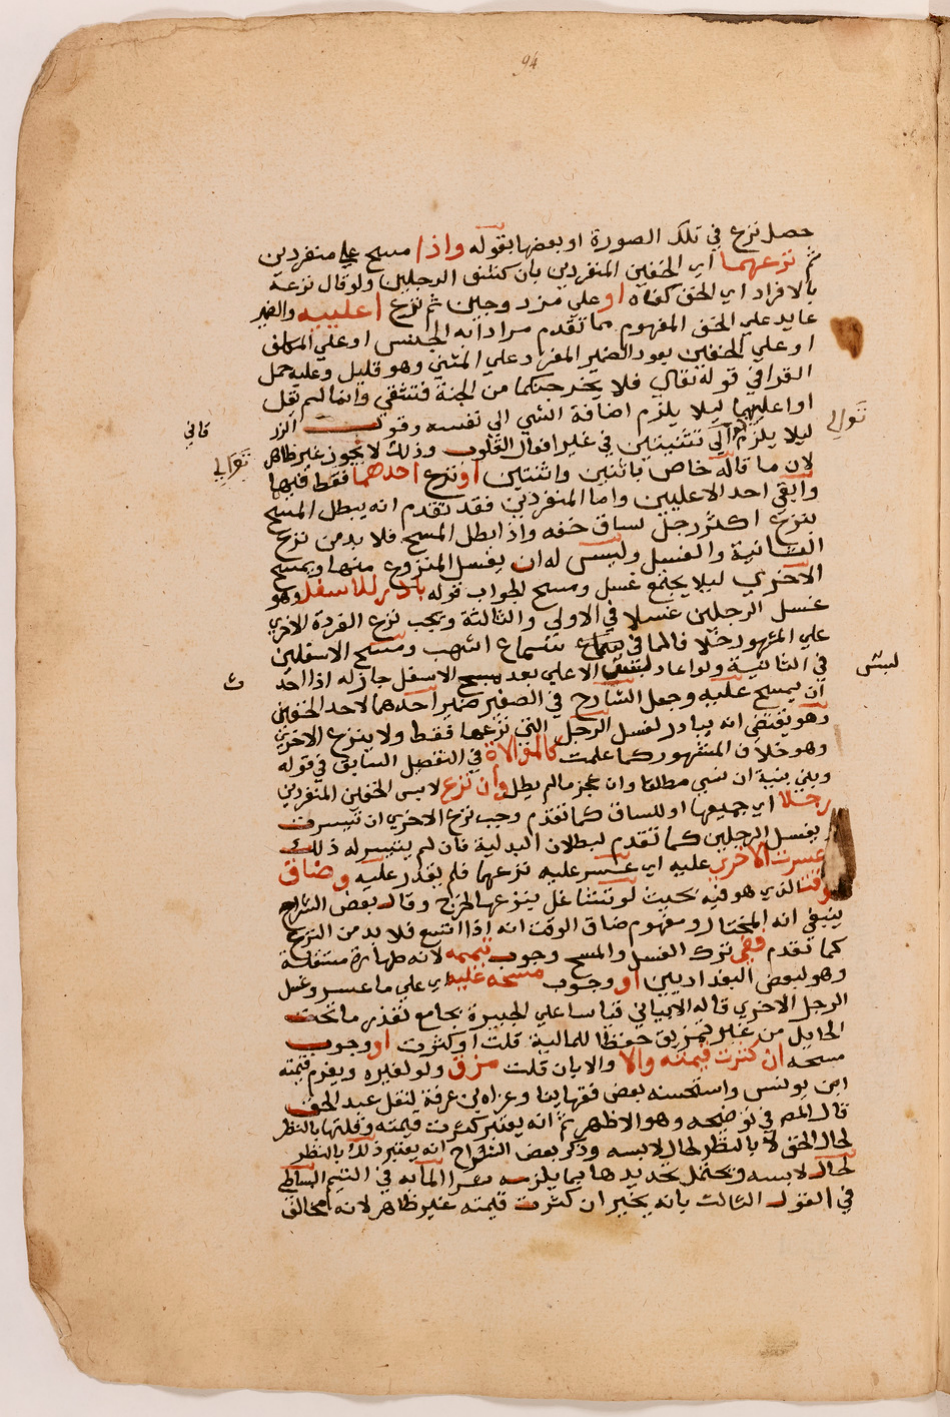 94
حصل نزع في تلك الصورة او بعضها بقوله واذا مسح علي منفردين
ثم نزعهما اي الخفين المنفردين بان كشف الرجلين ولو قال نزعه
بالافراد اي الخف كفاه او علي مزدوجين ثم نزع اعلييه والضمير
عايد علي الخف المفهوم مما تقدم مراد به الجنس او علي الملف
او علي الخفين يعود الضمير المفرد علي المثني وهو قليل وعليه حمل
القرافي قوله تعالي فلا يخرجنكما من الجنة فتشقي وانما لم يقل
او اعليهما ليلا يلزم اضافة الشي الي نفسه وقول الزر
قاني
توالي
ليلا يلزم توالي تثنيتين في غير افعال القلوب وذلك لا يجوز غير ظاهر
توالي
لان ما قاله خاص باثنين واثنتين او نزع احدهما فقط فيهما
وابقي احد الاعليين واما المنفردين فقد تقدم انه يبطل المسح
بنزع اكثر رجل لساق خفه واذا بطل المسح فلا بد من نزع
الثانية والغسل وليس له ان يغسل المنزوع منها ويمسح
الاخري ليلا يجتمع غسل ومسح لجواب قوله بادر للاسفل وهو
غسل الرجلين غسلا في الاولي والثالثة ويجب نزع الفردة الاخري
علي المشهور خلافا لما في سماع اشهب ومسح الاسفلين
في الثانية ولو اعاد لبس الاعلي بعد مسح الاسفل جاز له اذا احد
لبس
ث
ان يمسح عليه وجعل الشارح في الصغير ضمير احدهما لاحد الخفين
وهو يقتضي انه يبادر لغسل الرجل التي نزعها فقط ولا ينزع الاخري
وهو خلاف المشهور كما علمت كالموالاة في التفصل السابق في قوله
وبني بنية ان نسي مطلقا وان عجز ما لم يطل وان نزع لابس الخفين المنفردين
رجلا اي جميعها او للساق كما تقدم وجب نزع الاخري ان تيسرت
بغسل الرجلين كما تقدم لبطلان البدلية فان لم يتيسر له ذلك
عسرت الاخري عليه اي عسر عليه نزعها فلم يقدر عليه وضاق
الوقت الذي هو فيه بحيث لو تشاغل بنزعها لخرج وقال بعض الشراح
ينبغي انه المختار ومفهوم ضاق الوقت انه اذا اتسع فلا بد من النزع
كما تقدم ففي ترك الغسل والمسح وجوب تيممه لانه طهارة مستقلة
وهو لبعض البغداديين او وجوب مسحه عليه اي علي ما عسر وغسل
الرجل الاخري قاله الابياني قياسا علي الجبيرة بجامع تعذر ما تحت
الحايل من غير تمزيق حفظا للمالية قلت او كثرت او وجوب
مسحه ان كثرت قيمته والا والا بان قلت مزق ولو لغيره ويغرم قيمته
ابن يونس واستحسنه بعض فقهاينا وعزاه ابن عرفة لنقل عبد الحق
قال المص في توضيحه وهو الاظهر ثم انه يعتبر كثرت قيمته وقلتها بالنظر
لحال الخف لا بالنظر لحال لابسه وذكر بعض الشراح انه يعتبر ذلك بالنظر
لحال لابسه ويحتمل تحديدها بما يلزمه شرا الما به في التيمم البساطي
في القول الثالث بانه يخير ان كثرت قيمته غير ظاهر لانه مخالف